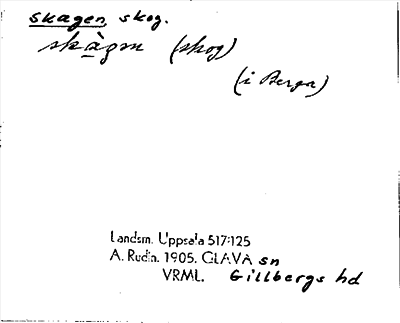 skagen, skog.
skàgm (skog)
(i Berga)
Landsm. Uppsala 517:125
A. Rudin. 1905. GLAVA sn
VRML. Gillbergs hd